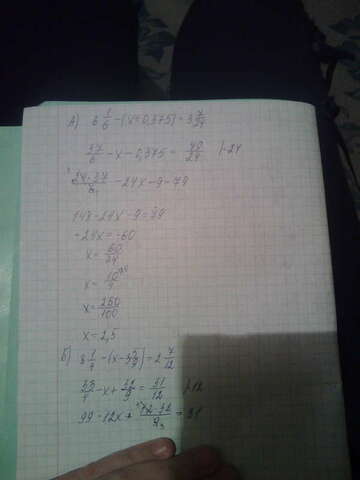 А) 6 1/6 - (x + 0,375) = 3 7/24
37/6 - x - 0,375 = 79/24 |·24
24·37/6 - 24x - 9 = 79
148 - 24x - 9 = 79
-24x = -60
x = 60/24
x = 10/4
x = 250/100
x = 2,5
Б) 8 1/4 - (x - 3 5/9) = 2 7/12
33/4 - x + 32/9 = 31/12 |·12
99 - 12x + 12·32/9 = 31